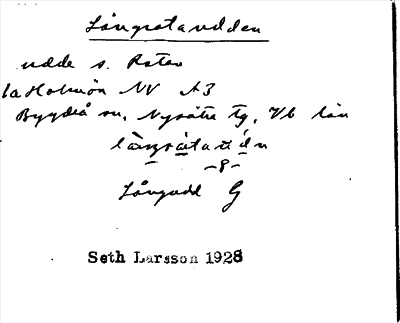 Långratandden
udde s. Ratan
la Holmön NV A3
Bygdeå sn. Nysätra tg. Vb län
Långudd G
Seth Larsson 1928